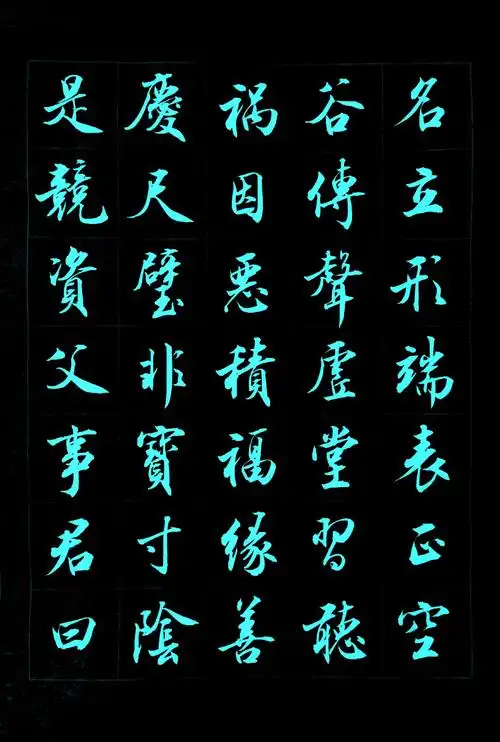 名立形端表正空
谷傳聲虛堂習聽
禍因惡積福緣善
慶尺璧非寶寸陰
是競資父事君曰